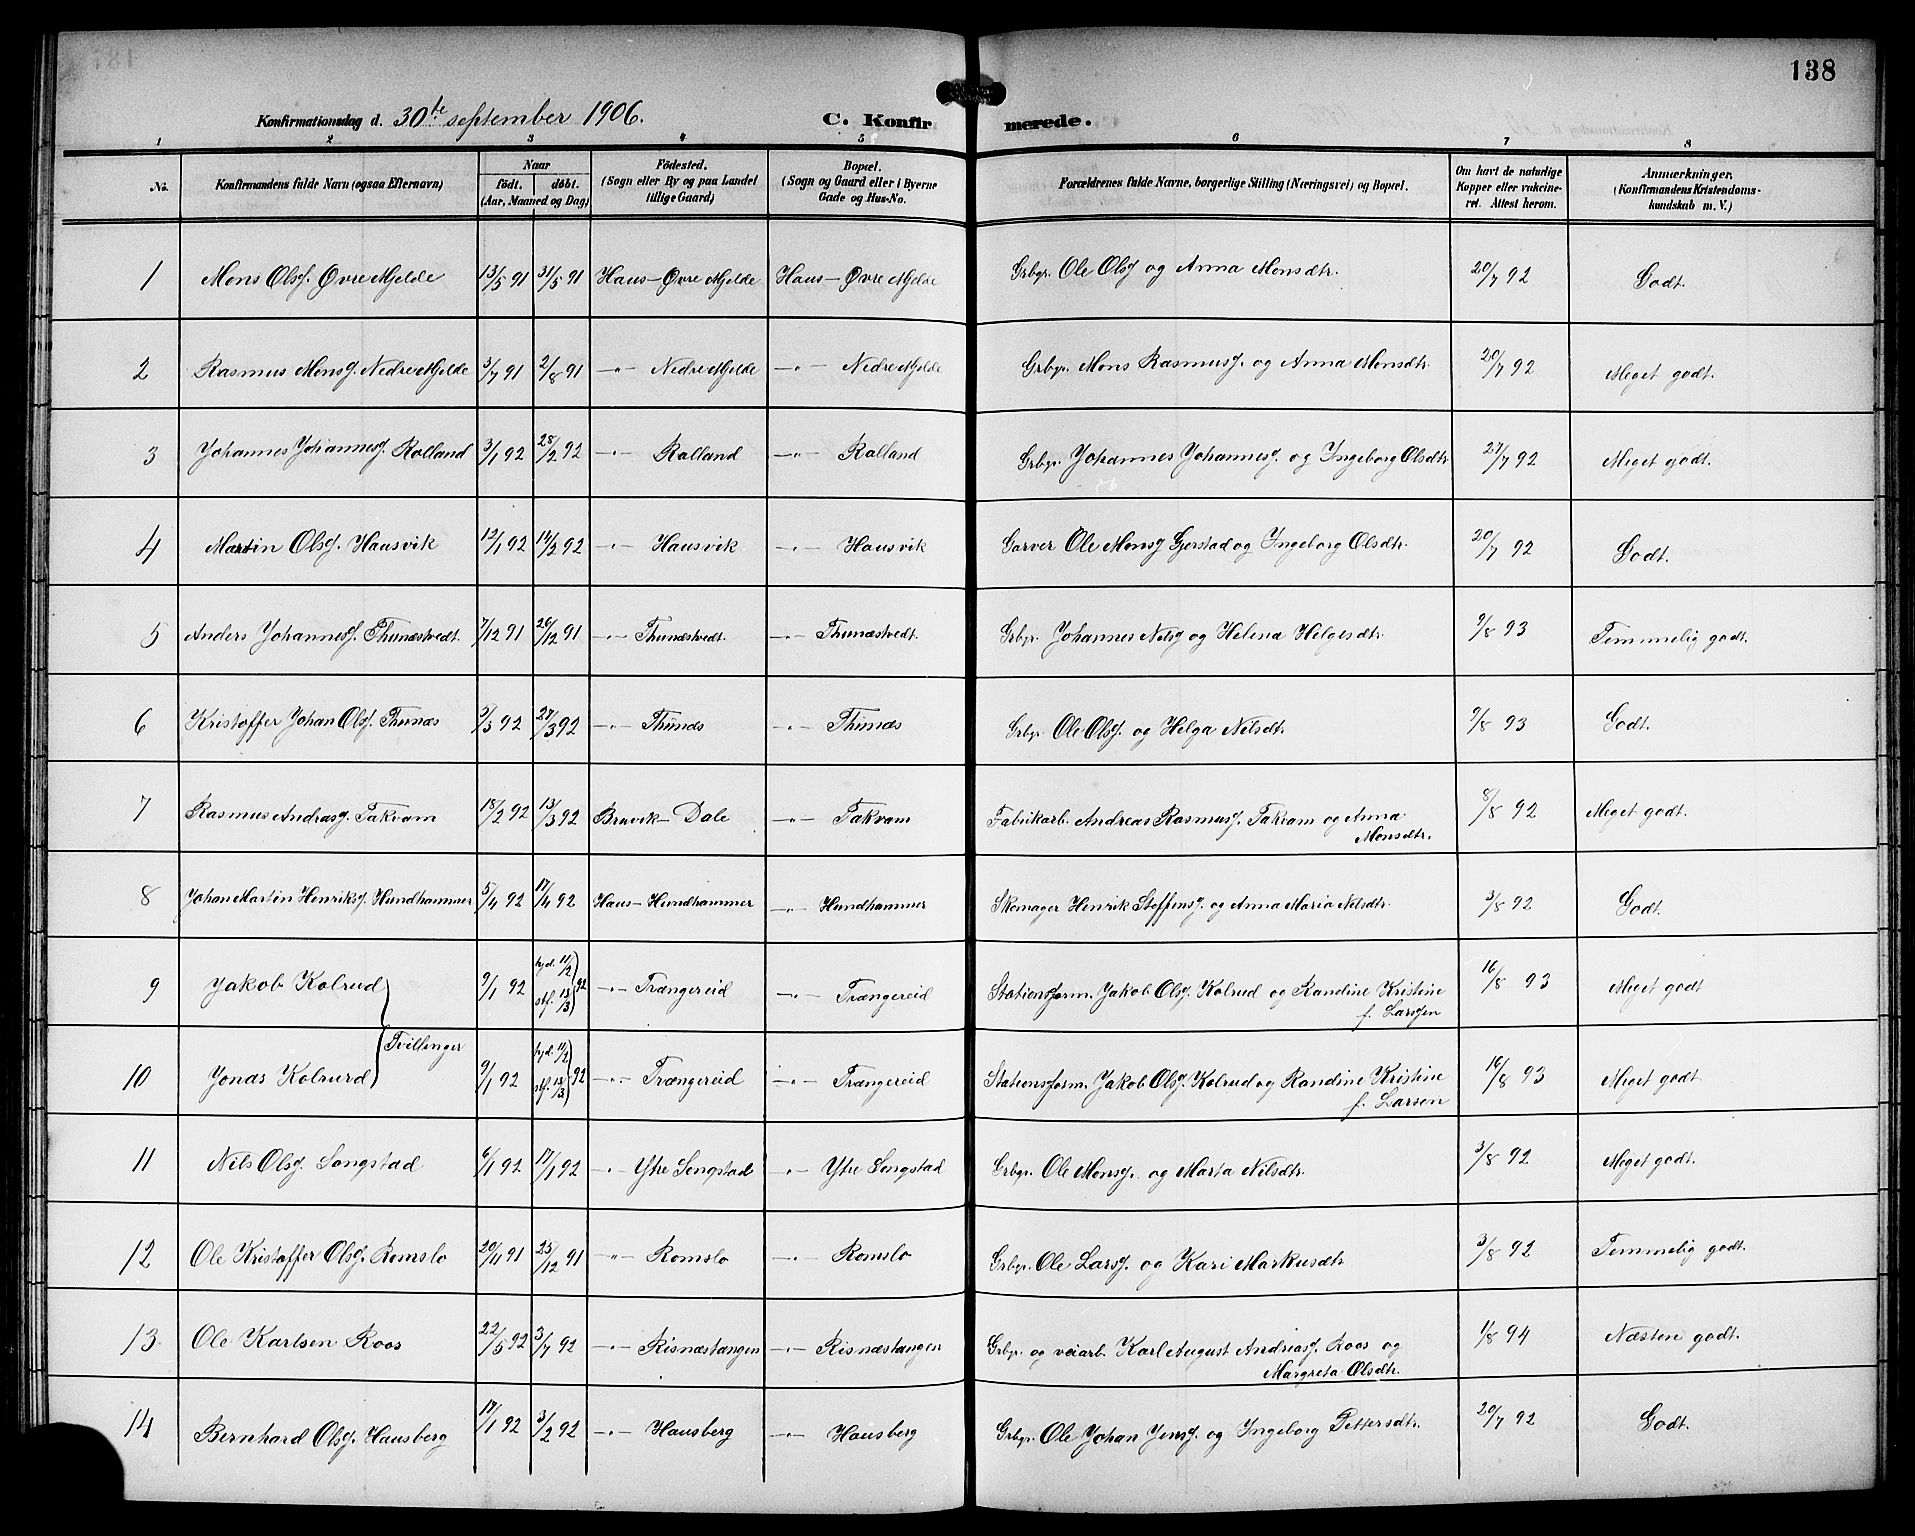 138
Konfirmationsdag d. 30te september 1906.
C. Konfirmerede.
1 2 3 4 5 6 7 8
No. Konfirmandens fulde Navn (ogsaa Efternavn) Naar født. døbt. (Aar, Maaned og Dag) Fødested. (Sogn eller By og paa Landet tillige Gaard) Bopæl. (Sogn og Gaard eller i Byerne Gade og Hus-No. Forældrenes fulde Navne, borgerlige Stilling (Næringsvei) og Bopæl. Om havt de naturlige Kopper eller vakcineret. Attest herom. Anmærkninger. (Konfirmandens Kristendomskundskab m. V.)
1 Mons Olsg. Øvre Mjelde 13/5 91 31/5 91 Haus - Øvre Mjelde Haus - Øvre Mjelde Grbgr. Ole Olsg og Anna Monsdtr. 20/7 92 Godt.
2 Rasmus Monsg. Nedre Mjelde 3/7 91 2/8 91 -"- Nedre Mjelde -"- Nedre Mjelde Grbgr. Mons Rasmusg. og Anna Monsdtr. 20/7 92 Meget godt.
3 Johannes Johannesg. Rolland 3/1 92 28/2 92 -"- Rolland -"- Rolland Grbgr. Johannes Johannesg. og Ingeborg Olsdtr 27/7 92 Meget godt.
4 Martin Olsg. Hausvik 12/1 92 14/2 92 -"- Hausvik -"- Hausvik Garver Ole Monsg Gjerstad og Ingeborg Olsdtr. 20/7 92 Godt.
5 Anders Johannesg. Thunæstvedt. 7/12 91 26/12 91 -"- Thunæstvedt. -"- Thunæstvedt. Grbgr. Johannes Nilsg og Helena Helgesdtr. 9/8 93 Temmelig godt.
6 Kristoffer Johan Olsg. Thunæs 5/3 92 27/3 92 -"- Thunæs -"- Thunæs Grbgr. Ole Olsg. og Helga Nilsdtr. 9/8 93 Godt.
7 Rasmus Andrasg. Takvam 18/2 92 13/3 92 Bruvik - Dale -"- Takvam Fabrikarb. Andreas Rasmusg. Takvam og Anna
Monsdtr. 8/8 92 Meget godt.
8 Johan Martin Henriksg. Hundhammer 5/4 92 17/4 92 Haus - Hundhammer -"- Hundhammer Skomager Henrik Steffensg. og Anna Maria Nilsdtr. 3/8 92 Godt.
9 Jakob Kolrud 9/1 92 hjd. 11/2 stf. 13/3 92 -"- Trængereid -"- Trængereid Stationsform. Jakob Olsg. Kolrud og Randine Kristine
f. Larssen 16/8 93 Meget godt
Tvillinger
10 Jonas Kolrurd 9/1 92 hjd. 11/2 stf. 13/3 92 -"- Trængereid -"- Trængereid Stationsform. Jakob Olsg. Kolrud og Randine Kristine
f. Larsen 16/8 93 Meget godt
11 Nils Olsg. Songstad 6/1 92 17/1 92 -"- Ytre Songstad -"- Ytre Songstad Grbgr. Ole Monsg. og Marta Nilsdtr. 3/8 92 Meget godt.
12 Ole Kristoffer Olsg. Romslo 20/11 91 25/12 91 -"- Romslo -"- Romslo Grbgr. Ole Larsg. og Kari Markusdtr 3/8 92 Temmelig godt.
13 Ole Karlsen Roos 22/5 92 3/7 92 -"- Risnæstangen -"- Risnæstangen Grbgr. og veiarb. Karl August Andriasg. Roos og
Margreta Olsdtr. 1/8 94 Næsten godt.
14 Bernhard Olsg. Hausberg 17/1 92 3/2 92 -"- Hausberg -"- Hausberg Grbgr. Ole Johan Jensg. og Ingeborg Pettersdtr. 20/7 92 Godt.